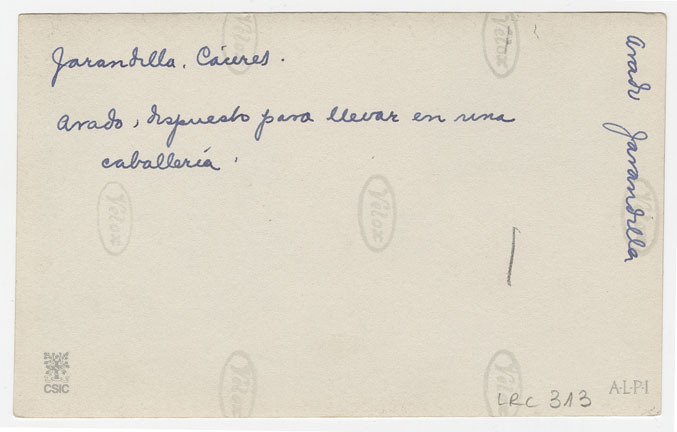 Jarandilla. Cáceres.
Arado, dispuesto para llevar en una
caballería.
Arado Jarandilla
Velox
Velox
Velox
Velox
Velox
Velox
Velox
CSIC
LRC 313
A·L·P·I